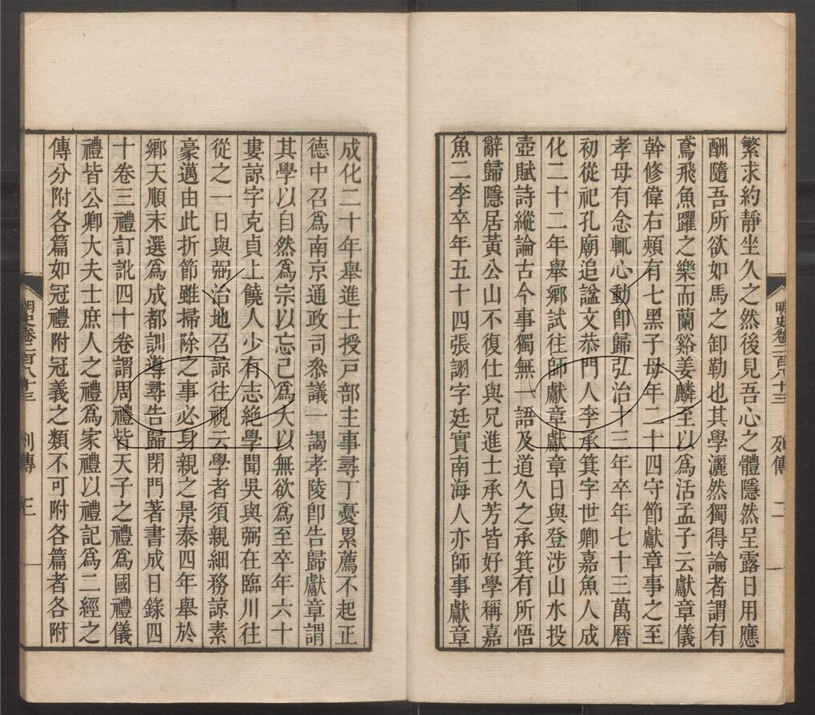 繁求約靜坐久之然後見吾心之體隱然呈露日用應
酬隨吾所欲如馬之卸勒也其學灑然獨得論者謂有
鳶飛魚躍之樂而蘭谿姜麟至以為活孟子云獻章儀
幹修偉右頰有七黑子母年二十四守節獻章事之至
孝母有念輒心動卽歸弘治十三年卒年七十三萬曆
初從祀孔廟追謚文恭門人李承箕字世卿嘉魚人成
化二十二年舉鄉試往師獻章獻章日與登涉山水投
壺賦詩縱論古今事獨無一語及道久之承箕有所悟
辭歸隱居黃公山不復仕與兄進士承芳皆好學稱嘉
魚二李卒年五十四張詡字廷實南海人亦師事獻章
明史卷二百八十三 列傳 二
成化二十年舉進士授戶部主事尋丁憂累薦不起正
德中召爲南京通政司叅議一謁孝陵卽告歸獻章謂
其學以自然爲宗以忘己爲大以無欲爲至卒年六十
婁諒字克貞上饒人少有志絶學聞吳與弼在臨川往
從之一日與弼治地召諒往視云學者須親細務諒素
豪邁由此折節雖掃除之事必身親之景泰四年舉於
鄉天順末選爲成都訓導尋告歸閉門著書成日錄四
十卷三禮訂訛四十卷謂周禮皆天子之禮爲國禮儀
禮皆公卿大夫士庶人之禮爲家禮以禮記爲二經之
傳分附各篇如冠禮附冠義之類不可附各篇者各附
明史卷二百八十三 列傳 三